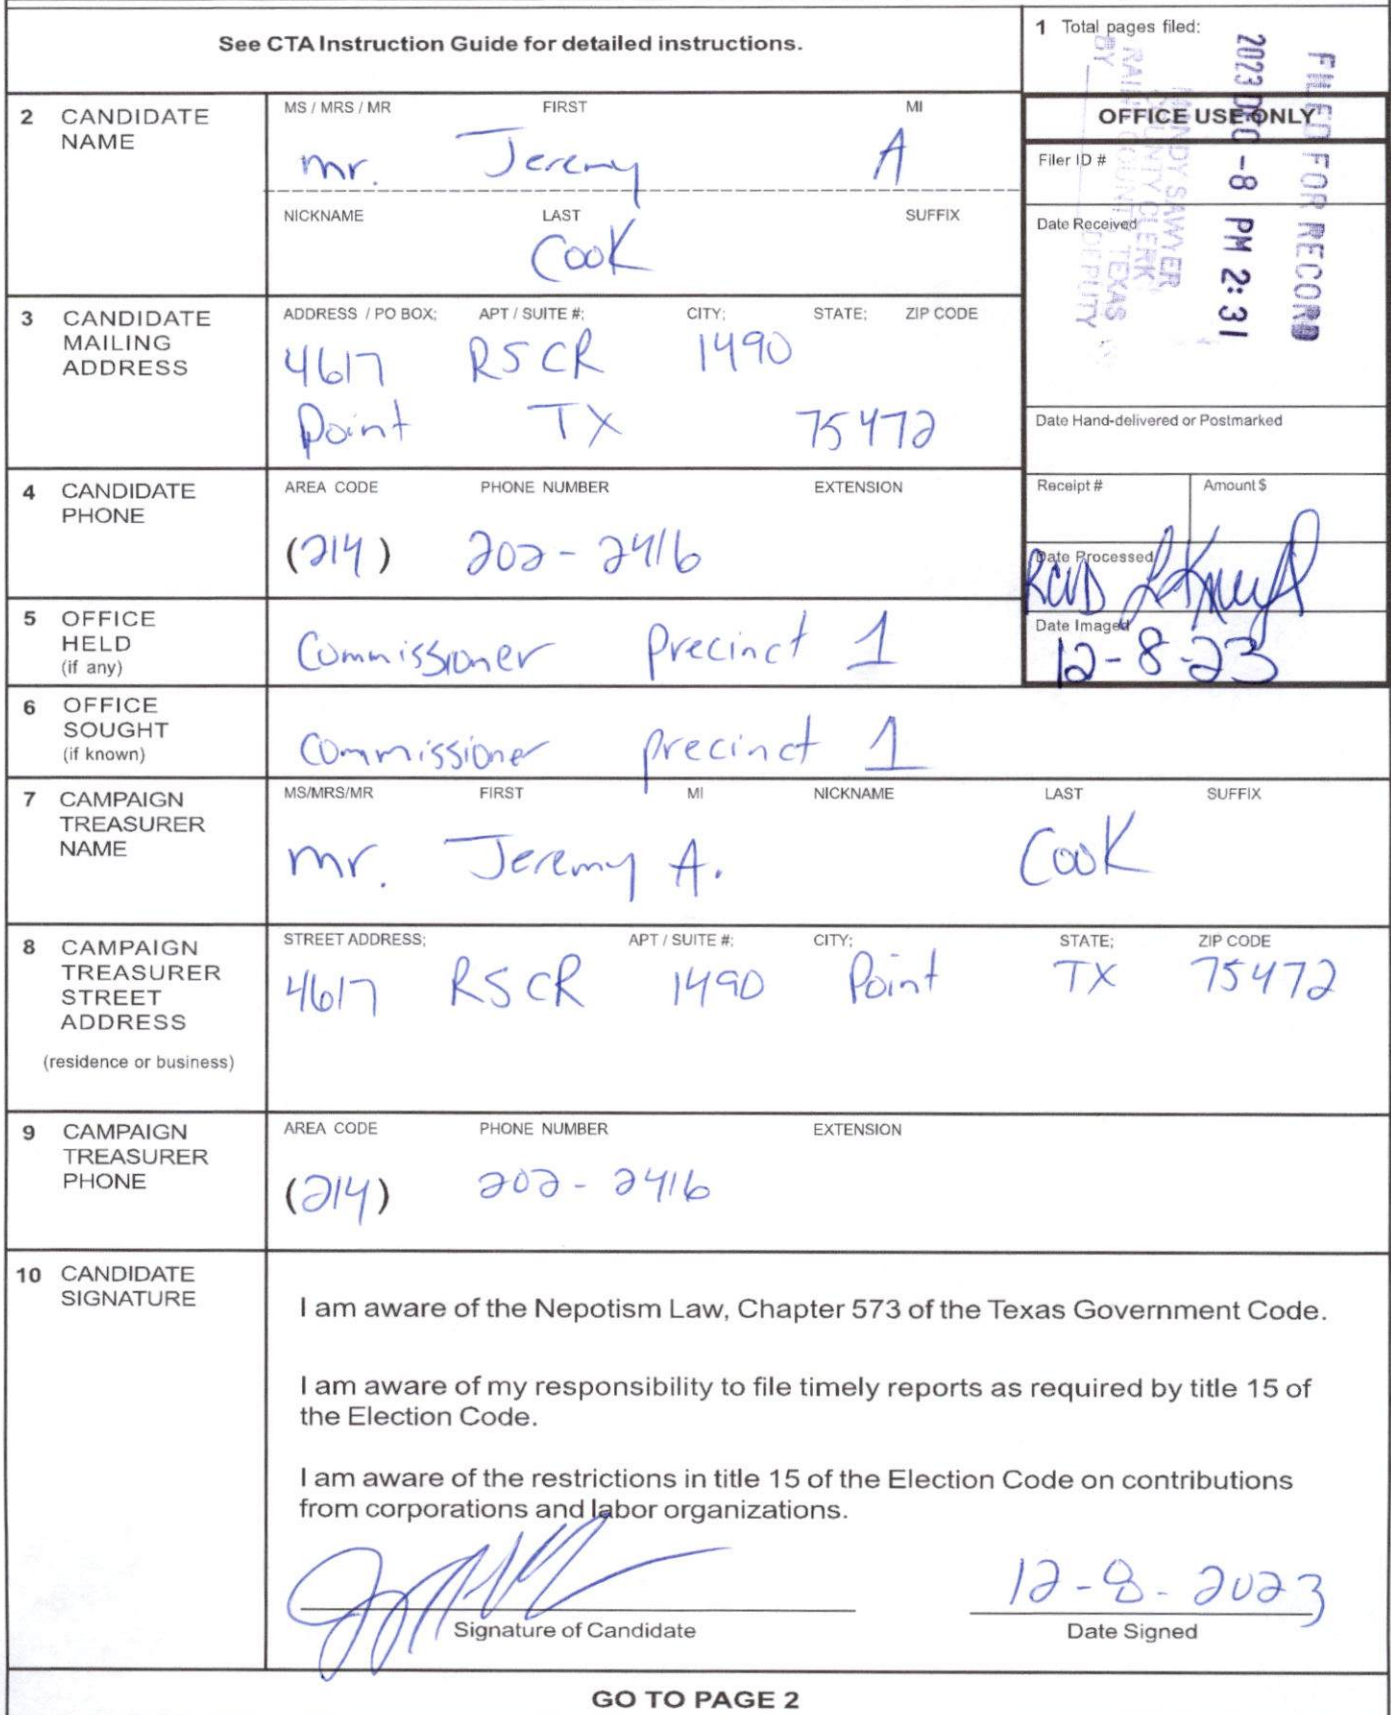 See CTA Instruction Guide for detailed instructions.
1 Total pages filed:
FILED FOR RECORD
2023 DEC -8 PM 2:31
MANDY SAWYER
COUNTY CLERK
RAINS COUNTY, TEXAS
BY DEPUTY
OFFICE USE ONLY
Filer ID #
Date Received
Date Hand-delivered or Postmarked
Receipt # Amount $
Date Processed
RCVD
Date Imaged
12-8-23
2 CANDIDATE NAME
MS / MRS / MR FIRST MI
mr. Jeremy A
NICKNAME LAST SUFFIX
Cook
3 CANDIDATE MAILING ADDRESS
ADDRESS / PO BOX; APT / SUITE #; CITY; STATE; ZIP CODE
4617 RSCR 1490
Point TX 75472
4 CANDIDATE PHONE
AREA CODE PHONE NUMBER EXTENSION
(214) 202-2416
5 OFFICE HELD (if any)
Commissioner Precinct 1
6 OFFICE SOUGHT (if known)
Commissioner precinct 1
7 CAMPAIGN TREASURER NAME
MS/MRS/MR FIRST MI NICKNAME LAST SUFFIX
mr. Jeremy A. Cook
8 CAMPAIGN TREASURER STREET ADDRESS
(residence or business)
STREET ADDRESS; APT / SUITE #; CITY; STATE; ZIP CODE
4617 RSCR 1490 Point TX 75472
9 CAMPAIGN TREASURER PHONE
AREA CODE PHONE NUMBER EXTENSION
(214) 202-2416
10 CANDIDATE SIGNATURE
I am aware of the Nepotism Law, Chapter 573 of the Texas Government Code.
I am aware of my responsibility to file timely reports as required by title 15 of
the Election Code.
I am aware of the restrictions in title 15 of the Election Code on contributions
from corporations and labor organizations.
12-8-2023
Signature of Candidate Date Signed
GO TO PAGE 2